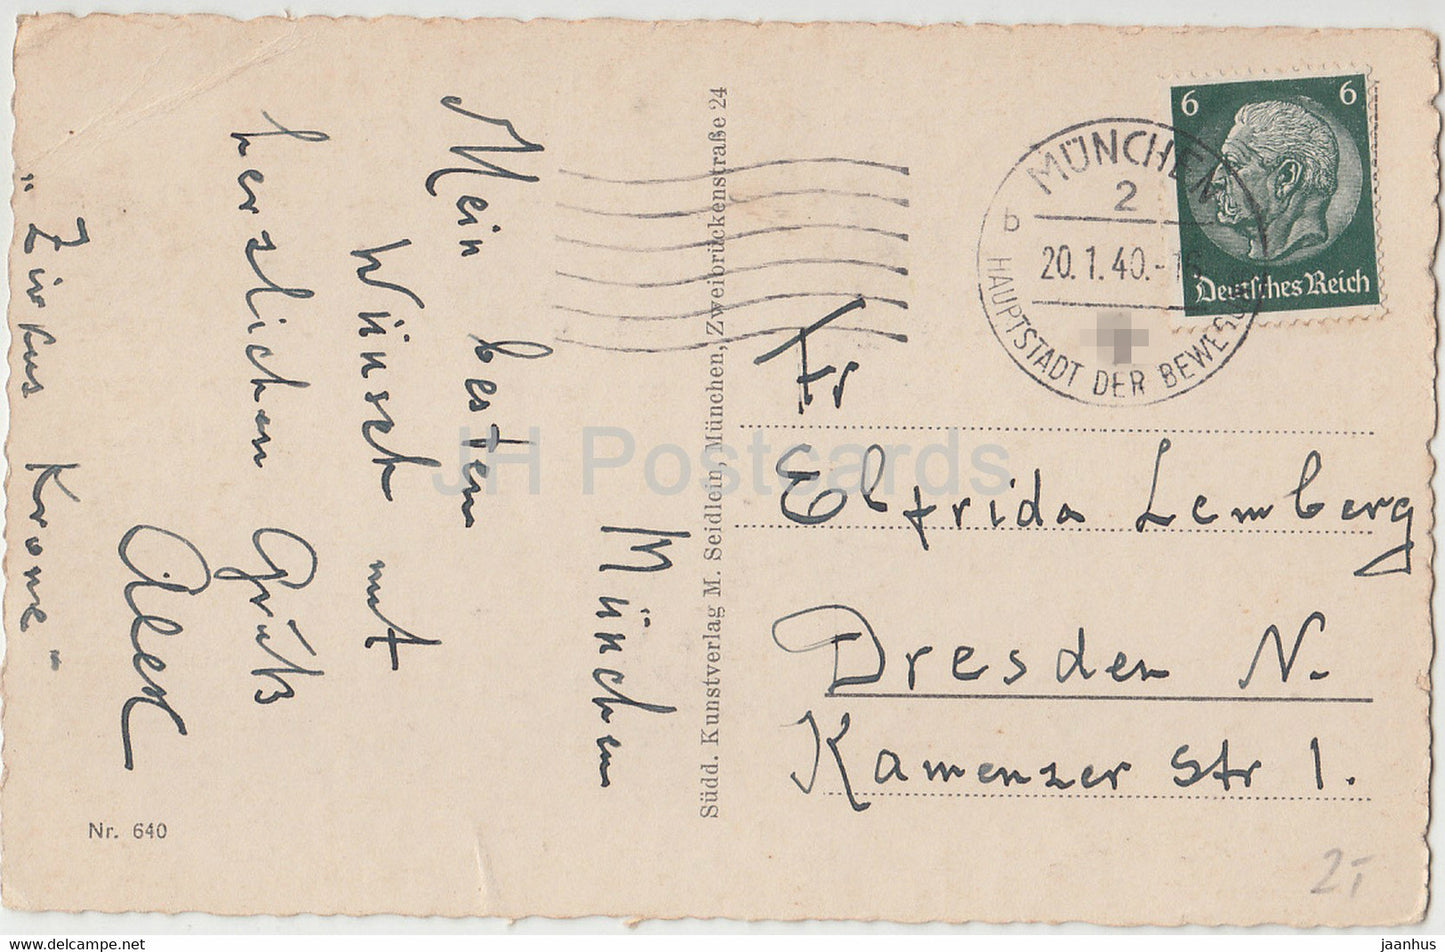 München
Mein besten
Wünsch mit
herzlichen Grüß
Alex
"Zirkus Krone"
Nr. 640
Südd. Kunstverlag M. Seidlein, München, Zweibrückenstraße 24
MÜNCHEN
2
b
20.1.40.-15
HAUPTSTADT DER BEWEGUNG
6 6
Deutsches Reich
Fr
Elfrida Lemberg
Dresden N.
Kamenzer Str 1.
2,-
JH Postcards
www.delcampe.net
jaanhus